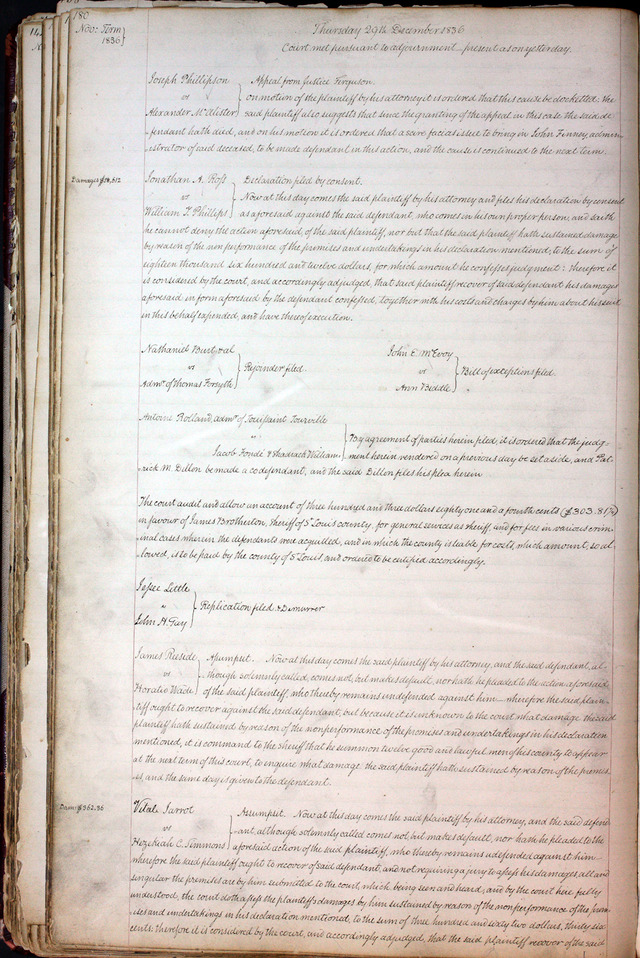 180
Nov: Term
1836
Thursday 29th December 1836
Court met pursuant to adjournment present as on yesterday.
Joseph Phillipson
vs
Alexander McAlister
Appeal from Justice Ferguson.
on motion of the plaintiff by his attorney it is ordered that this cause be docketted: the
said plaintiff also suggests that since the granting of the appeal in this case the said de
fendant hath died, and on his motion it is ordered that a scire facias issue to bring in John Finney admin-
istrator of said deceased, to be made defendant in this action, and the cause is continued to the next term.
Jonathan A.
vs
William T. Phillips
Declaration filed by consent.
Now at this day comes the said plaintiff by his attorney and files his declaration by consent
as aforesaid against the said defendant, who comes in his own proper person, and saith
he cannot deny the action aforesaid, of the said plaintiff, nor but that the said plaintiff hath sustained damage
by reason of the non performance of the premises and undertakings in his declaration mentioned, to the sum of
eighteen thousand six hundred and twelve dollars, for which amount he confesses judgment: therefore it
is considered by the court, and accordingly adjudged, that said plaintiff recover of said defendant his damages
aforesaid in form aforesaid by the defendant confessed, together with his costs and charges by him about his suit
in this behalf expended, and have thereof execution.
Nathaniel Burt & al
vs
Admr of Thomas Forsyth
Rejoinder filed.
John E. McEvoy
vs
Ann Biddle
Bill of exceptions filed.
Antoine Rolland, admr of Toussaint Tourville
"
Jacob Fondé & Shadrach William
By agreement of parties herein filed, it is ordered that the judg-
ment herein rendered on a previous day be set aside, and Pat-
rick M. Dillon be made a codefendant, and the said Dillon files his plea herein
The court audit and allow an account of three hundred and three dollars eighty one and a fourth cents ($303.81¼)
in favour of James Brotherton, sheriff of St Louis county, for general services as sheriff, and for fees in various crim-
inal cases wherein the defendants were acquitted, and in which the county is liable for costs, which amount, so al
lowed, is to be paid by the county of St Louis, and ordered to be certified accordingly.
Jesse Little
"
John H. Gay
Replication filed & Demurrer
James Reeside
vs
Horatio Wade
Assumpsit. Now at this day comes the said plaintiff by his attorney, and the said defendant, al
though solemnly called, comes not, but makes default, nor hath he pleaded to the action aforesaid
of the said plaintiff, who thereby remains undefended against him wherefore the said plain-
tiff ought to recover against the said defendant, but because it is unknown to the court what damage the said
plaintiff hath sustained by reason of the nonperformance of the promises and undertakings in his declaration
mentioned, it is command to the sheriff that he summon twelve good and lawful men of his county to appear
at the next term of this court, to enquire what damage the said plaintiff hath sustained by reason of the premis-
es, and the same day is given to the defendant.
Dam: $362.36
Vital Jarrot
vs
Hezekiah C. Simmons
Assumpsit. Now at this day comes the said plaintiff by his attorney, and the said defen-
ant, although solemnly called comes not, but makes default, nor hath he pleaded to the
aforesaid action of the said plaintiff, who thereby remains undefended against him
wherefore the said plaintiff ought to recover of said defendant, and not requiring a jury to assess his damages, all and
singular the premises are by him submitted to the court, which being seen and heard, and by the court here fully
understood, the court doth assess the plaintiff's damages by him sustained by reason of the nonperformance of the prom
ises and undertakings in his declaration mentioned, to the sum of three hundred and sixty two dollars, thirty six
cents: therefore it is considered by the court, and accordingly adjudged, that the said plaintiff recover of the said